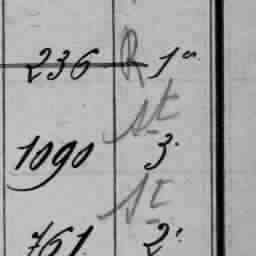 236 R 1ª
St
1090 3.
St
761 2.